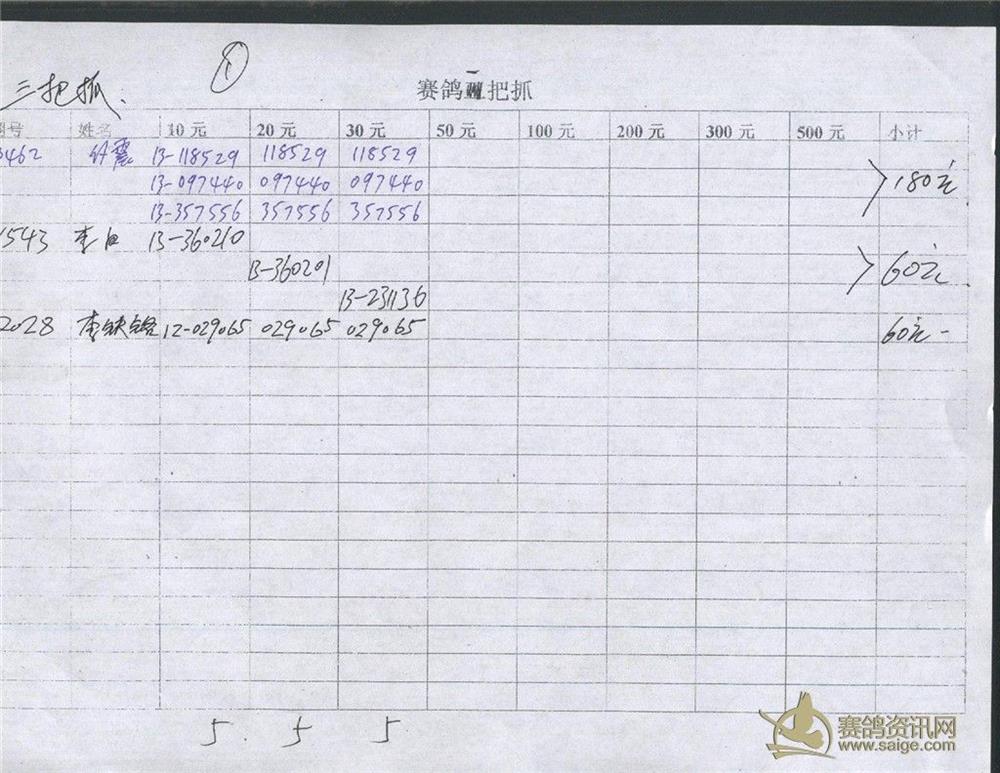 ①
三把抓.
赛鸽三把抓
号 姓名 10 元 20 元 30 元 50 元 100 元 200 元 300 元 500 元 小计
462 震 13-118529 118529 118529
13-097440 097440 097440 180元
13-357556 357556 357556
1543 李 13-360210
13-360201 60元
13-231136
2028 李 12-029065 029065 029065 60元-
5. 5 5
赛鸽资讯网
www.saige.com